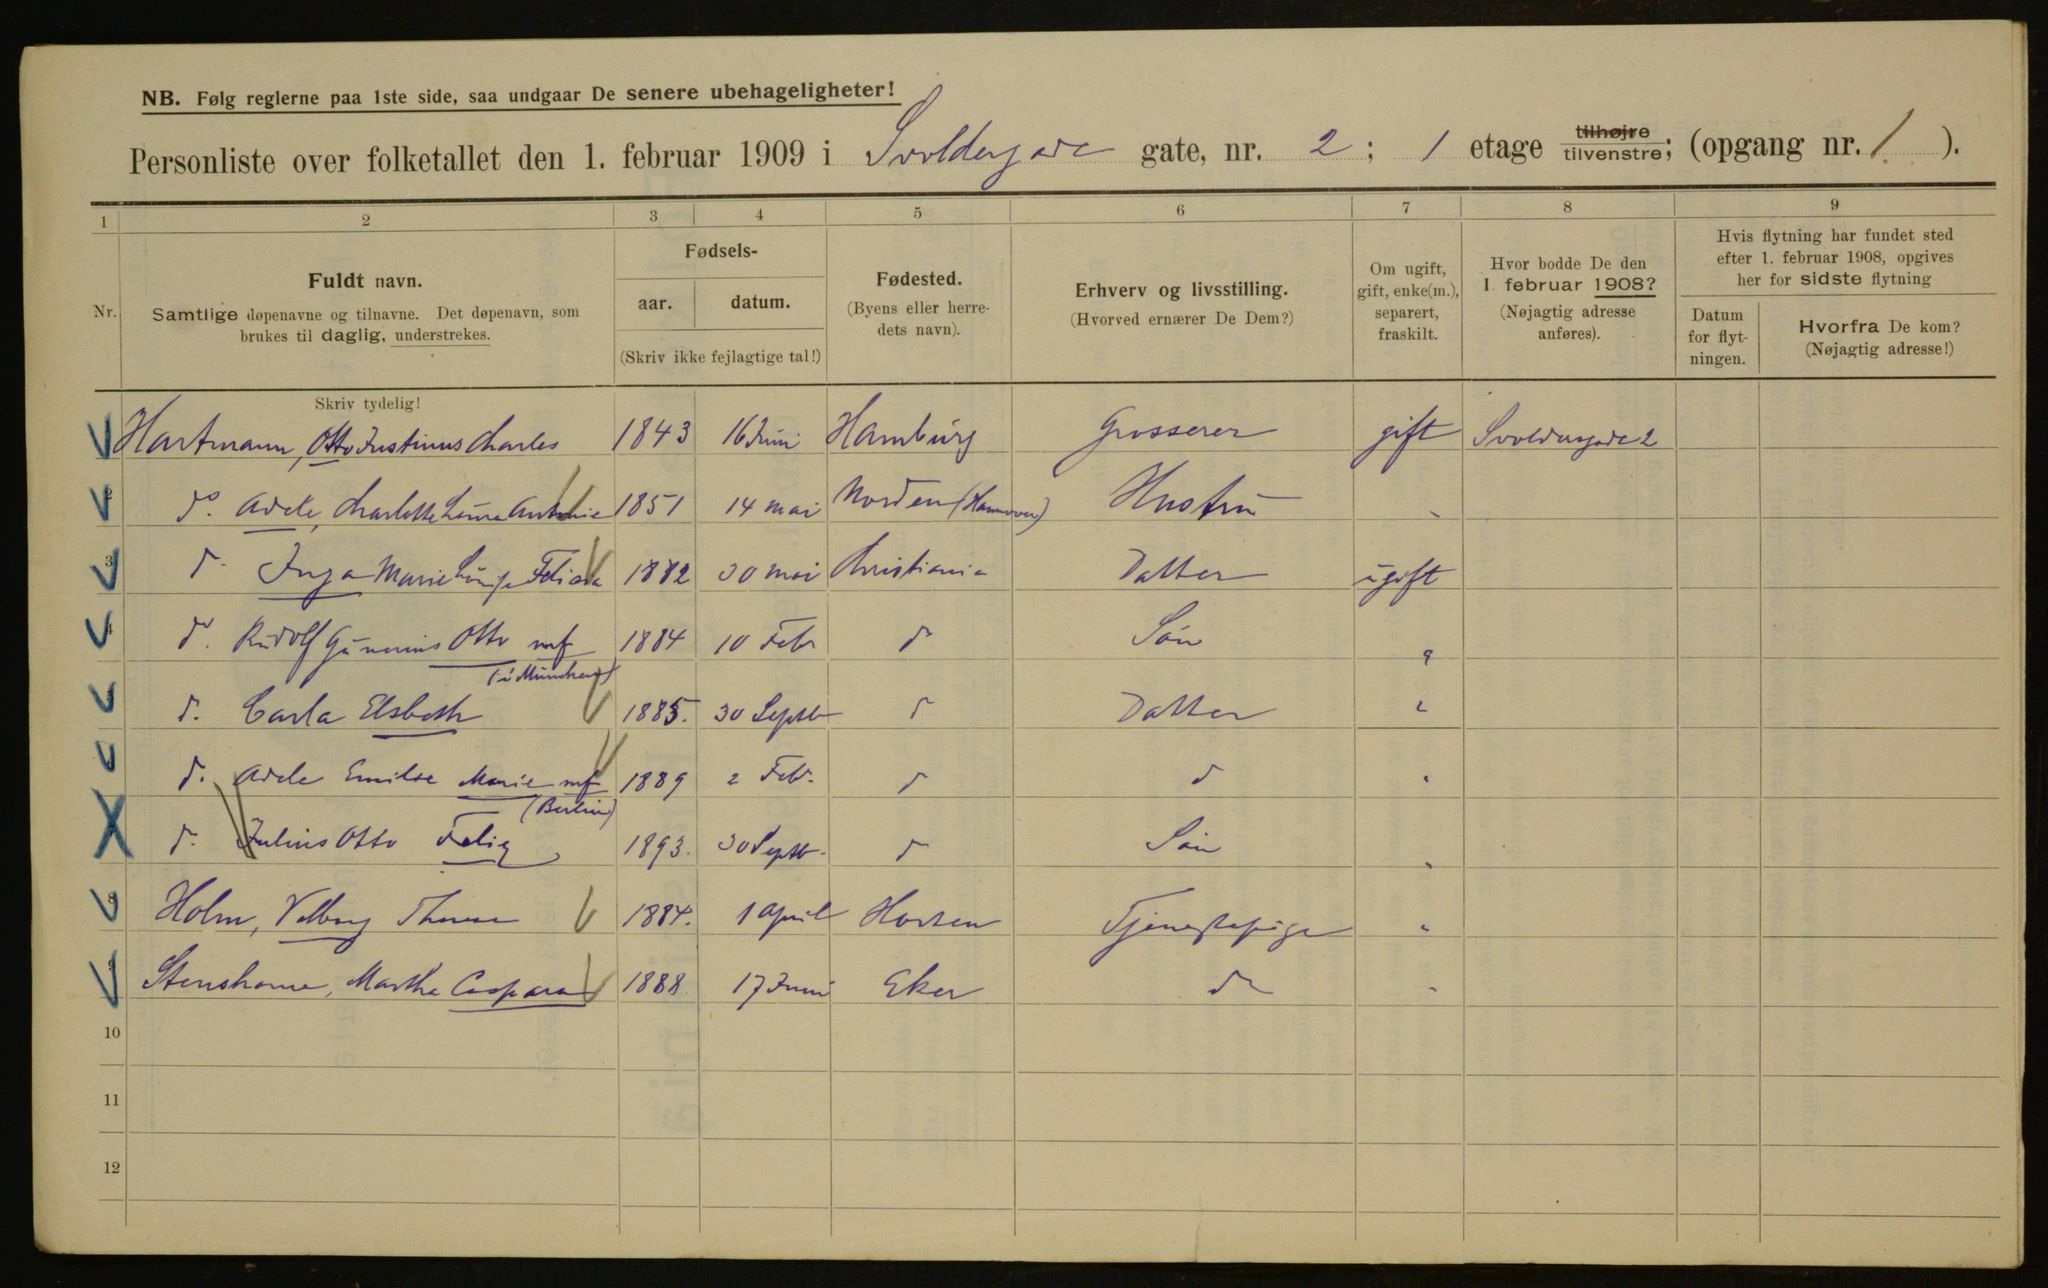 NB. Følg reglerne paa 1ste side, saa undgaar De senere ubehageligheter!
Personliste over folketallet den 1. februar 1909 i Svoldergade gate, nr. 2; 1 etage tilhøjre tilvenstre; (opgang nr. 1).
1 2 3 4 5 6 7 8 9
Nr.
Fuldt navn.
Samtlige døpenavne og tilnavne. Det døpenavn, som
brukes til daglig, understrekes.
Skriv tydelig!
Fødsels-
aar. datum.
(Skriv ikke fejlagtige tal!)
Fødested.
(Byens eller herre-
dets navn).
Erhverv og livsstilling.
(Hvorved ernærer De Dem?)
Om ugift,
gift, enke(m.),
separert,
fraskilt.
Hvor bodde De den
1. februar 1908?
(Nøjagtig adresse
anføres).
Hvis flytning har fundet sted
efter 1. februar 1908, opgives
her for sidste flytning
Datum
for flyt-
ningen.
Hvorfra De kom?
(Nøjagtig adresse!)
Hartmann, Otto Justinus Charles 1843 16 Juni Hamburg Grosserer gift Svoldergade 2
2 do Adele, Charlotte Antonie 1851 14 mai Norden (Hannover) Hustru "
3 d. Inga Marie Felicia 1882 30 mai Christiania Datter ugift
4 d. Rudolf Otto mf 1884 10 Febr d Søn "
(i München)
5 d. Carla Elsbeth 1885. 30 Septb d Datter "
d. Adele Emilie Marie mf 1889 2 Feb. d d "
(Berlin)
d. Julius Otto Felix 1893. 30 Septb. d Søn "
8 Holm, Valborg 1884. 1 April Horten Tjenestepige "
9 Martha Caspara 1888 17 Juni Eker d "
10
11
12